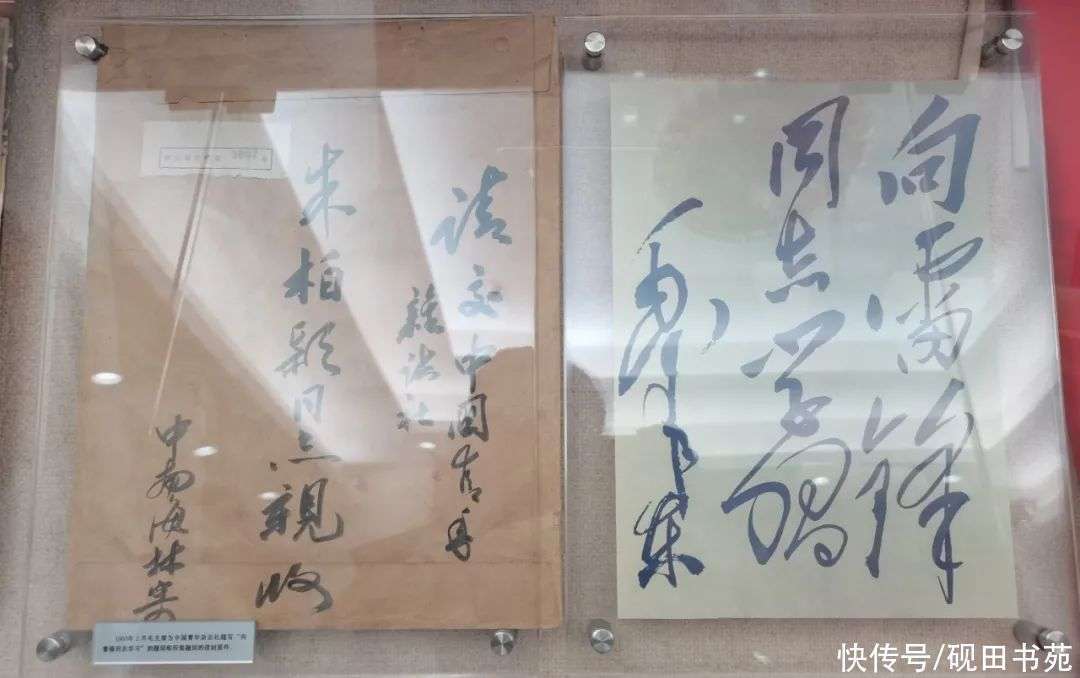 请交中国青年
雜誌社
朱柏颖同志親收
中南海林寄
向雷锋
同志学習
毛泽东
1963年2月毛主席为中国青年杂志社题写“向
雷锋同志学习”的题词和所装题词的信封原件。
快传号/砚田书苑